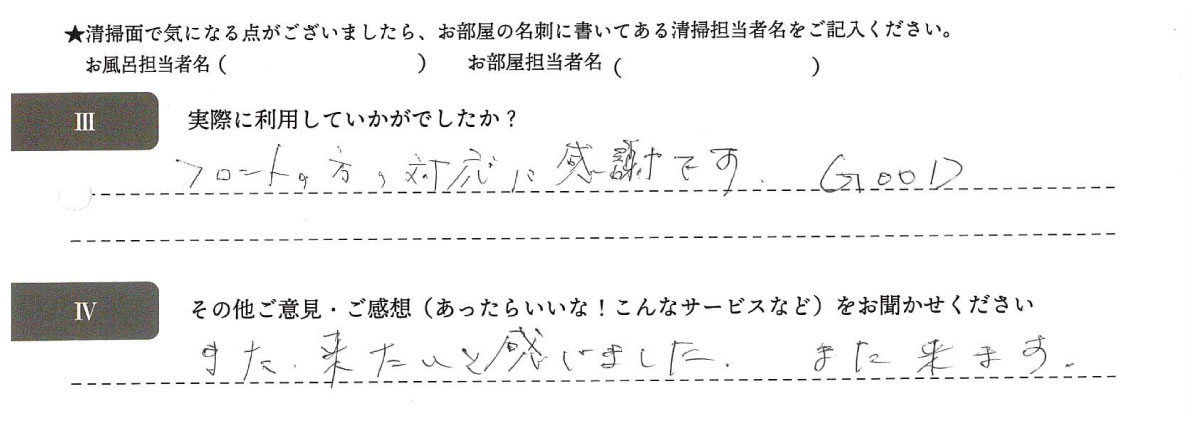 ★清掃面で気になる点がございましたら、お部屋の名刺に書いてある清掃担当者名をご記入ください。
お風呂担当者名（　　　　　　　　　） お部屋担当者名（　　　　　　　　　）
Ⅲ 実際に利用していかがでしたか？
フロントの方の対応に感謝です. GOOD
Ⅳ その他ご意見・ご感想（あったらいいな！こんなサービスなど）をお聞かせください
また.来たいと感じました. また来ます.